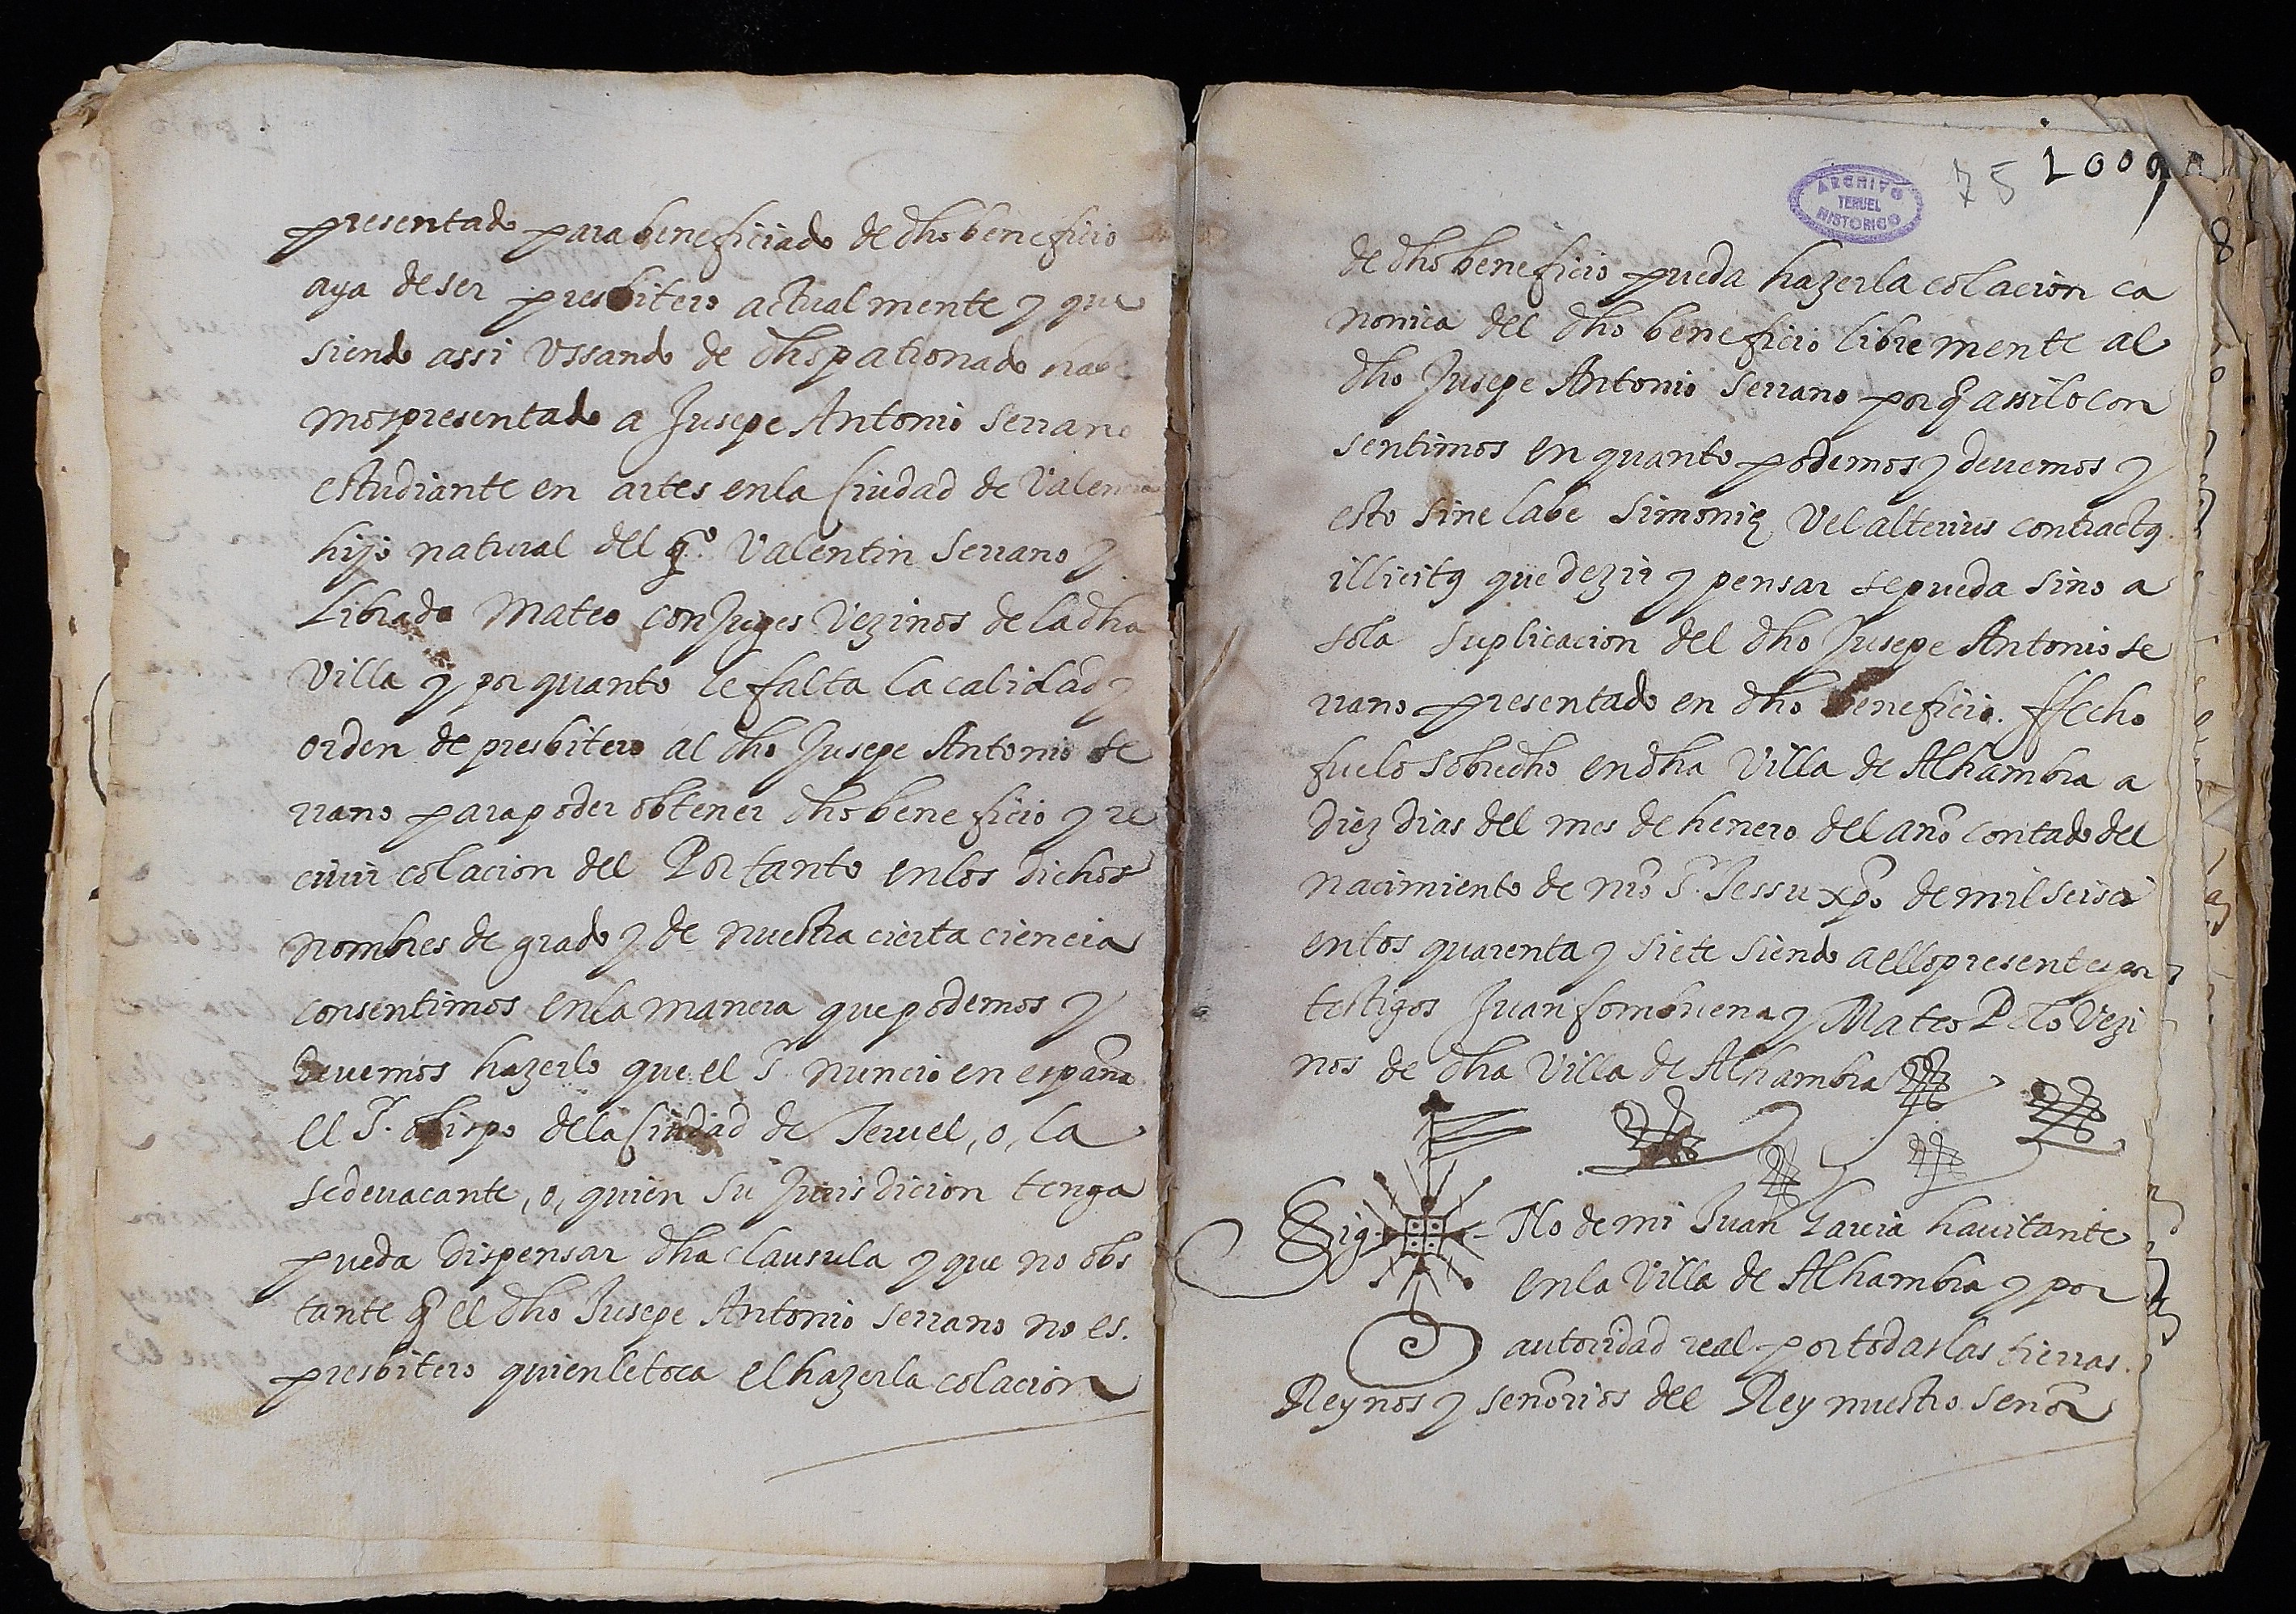 presentado para beneficiado de dho beneficio
aya de ser presbitero actual mente y que
siendo assi Ussando de dho patronado habe
mos presentado a Jusepe Antonio Serrano
estudiante en artes en la Ciudad de Valencia
hijo natural del qº. Valentin Serrano y
Librada Mateo Conjuges Vezinos de la dha
Villa y por quanto le falta la calidad y
orden de presbitero al dho Jusepe Antonio Se
rrano para poder obtener dho beneficio y re
civir colacion del Por tanto en los dichos
nombres de grado y de nuestra cierta ciencia
consentimos en la manera que podemos y
devemos hazerlo que el Sr. nuncio en españa
el Sr. obispo de la Ciudad de Teruel, o, la
sede vacante, o, quien su Jurisdicion tenga
pueda dispensar dha clausula y que no obs
tante q el dho Jusepe Antonio Serrano no es.
presbitero quien le toca el hazer la colacion
ARCHIVO
TERUEL
HISTORICO
75 1009
8
de dho beneficio pueda hazer la colacion ca
nonica del dho beneficio libre mente al
dho Jusepe Antonio Serrano por q assi lo con
sentimos en quanto podemos y devemos y
esto sine labe Simonię Vel alterius contractus
illicitus que dezir y pensar se pueda sino a
sola suplicacion del dho Jusepe Antonio Se
rrano presentado en dho beneficio. ffecho
fue lo sobredho en dha Villa de Alhambra a
diez dias del mes de henero del año contado del
nacimiento de nro Sr. Jessu xpo de mil seisci
entos quarenta y siete siendo a ello presentes por
testigos Juan fombuena y Mateo Polo Vezi
nos de dha Villa de Alhambra
Sig-No de mi Juan Garcia havitante
en la Villa de Alhambra y por
autoridad real por todas las tierras.
Reynos y señorios del Rey nuestro señor